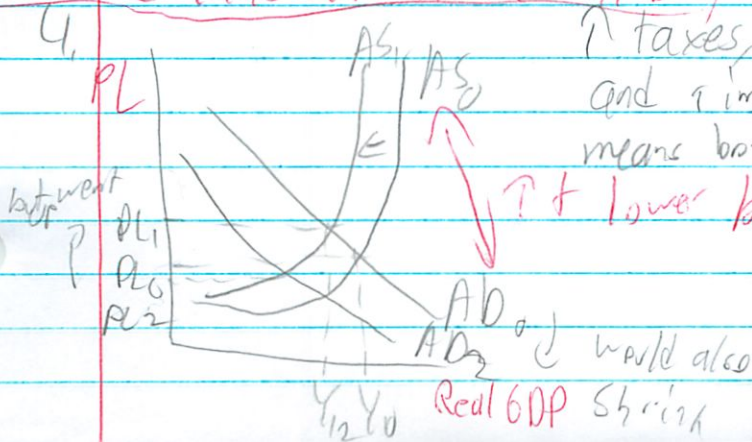 4.
PL
AS₁
AS₀
↑ taxes,
and ↑ im
means bo
↑ + lower b
but went
up
PL₁
PL₀
PL2
AD₀
AD₂
would also
Y₁₂ Y₀
Real GDP
Shrink